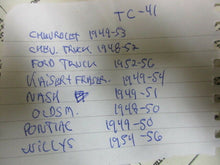 TC-41
CHEVROLET 1949-53
CHEV. TRUCK 1948-52
FORD TRUCK 1952-56
KAISER & FRASER 1949-54
NASH 1949-51
OLDSM. 1948-50
PONTIAC 1949-50
WILLYS 1954-56